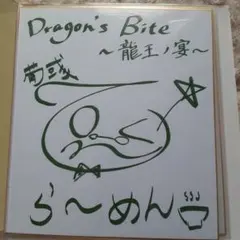 Dragon's Bite
～龍王ノ宴～
蔔惑
ら～めん